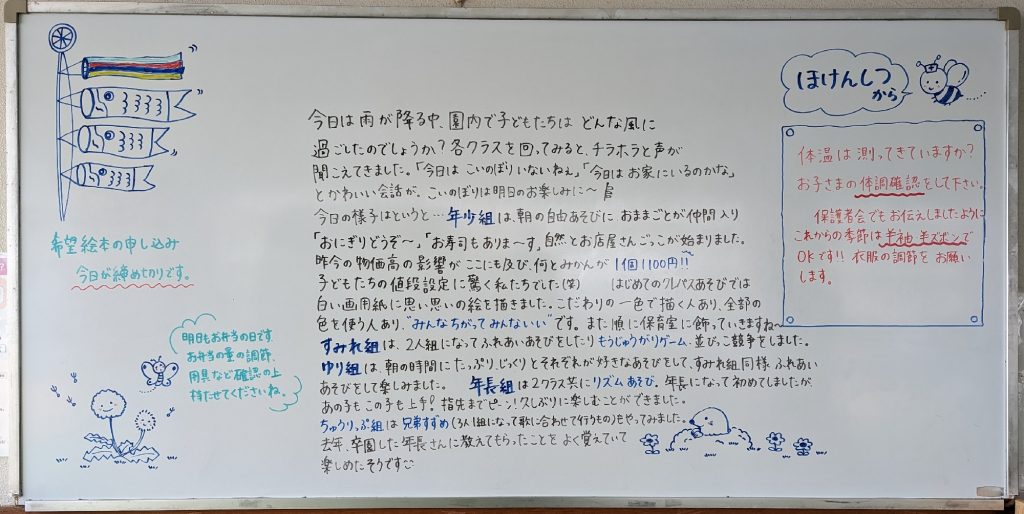 今日は雨が降る中、園内で子どもたちは どんな風に
過ごしたのでしょうか？各クラスを回ってみると、チラホラと声が
聞こえてきました。「今日は こいのぼり いないねぇ」「今日は お家に いるのかな」
とかわいい会話が、こいのぼりは明日のお楽しみに〜
今日の様子はというと… 年少組は、朝の自由あそびに おままごとが仲間入り
「おにぎりどうぞ〜」「お寿司もありま〜す」自然とお店屋さんごっこが始まりました。
昨今の物価高の影響が ここにも及び、何とみかんが 1個1100円!!
子どもたちの値段設定に驚く私たちでした(笑) はじめてのクレパスあそびでは
白い画用紙に思い思いの絵を描きました。こだわりの一色で描く人あり、全部の
色を使う人あり、"みんなちがって みんないい"です。また順に保育室に飾っていきますね〜
すみれ組は、2人組になってふれあいあそびをしたり もうじゅうがりゲーム、並びっこ競争をしました。
ゆり組は、朝の時間にたっぷりじっくりとそれぞれが好きなあそびをして、すみれ組同様 ふれあい
あそびをして楽しみました。 年長組は2クラス共にリズムあそび。年長になって初めてしましたが、
あの子も この子も上手！指先までピーン！久しぶりに楽しむことができました。
ちゅうりっぷ組は 兄弟すずめ(3人1組になって歌に合わせて行うもの)もやってみました。
去年、卒園した年長さんに教えてもらったことを よく覚えていて
楽しめたそうです
希望絵本の申し込み
今日が締め切りです。
明日もお弁当の日です
お弁当の量の調節、
用具など確認の上
持たせてくださいね。
ほけんしつ
から
体温は測ってきていますか？
お子さまの体調確認をして下さい。
保護者会でもお伝えしましたように
これからの季節は半袖半ズボンで
OKです!! 衣服の調節をお願い
します。